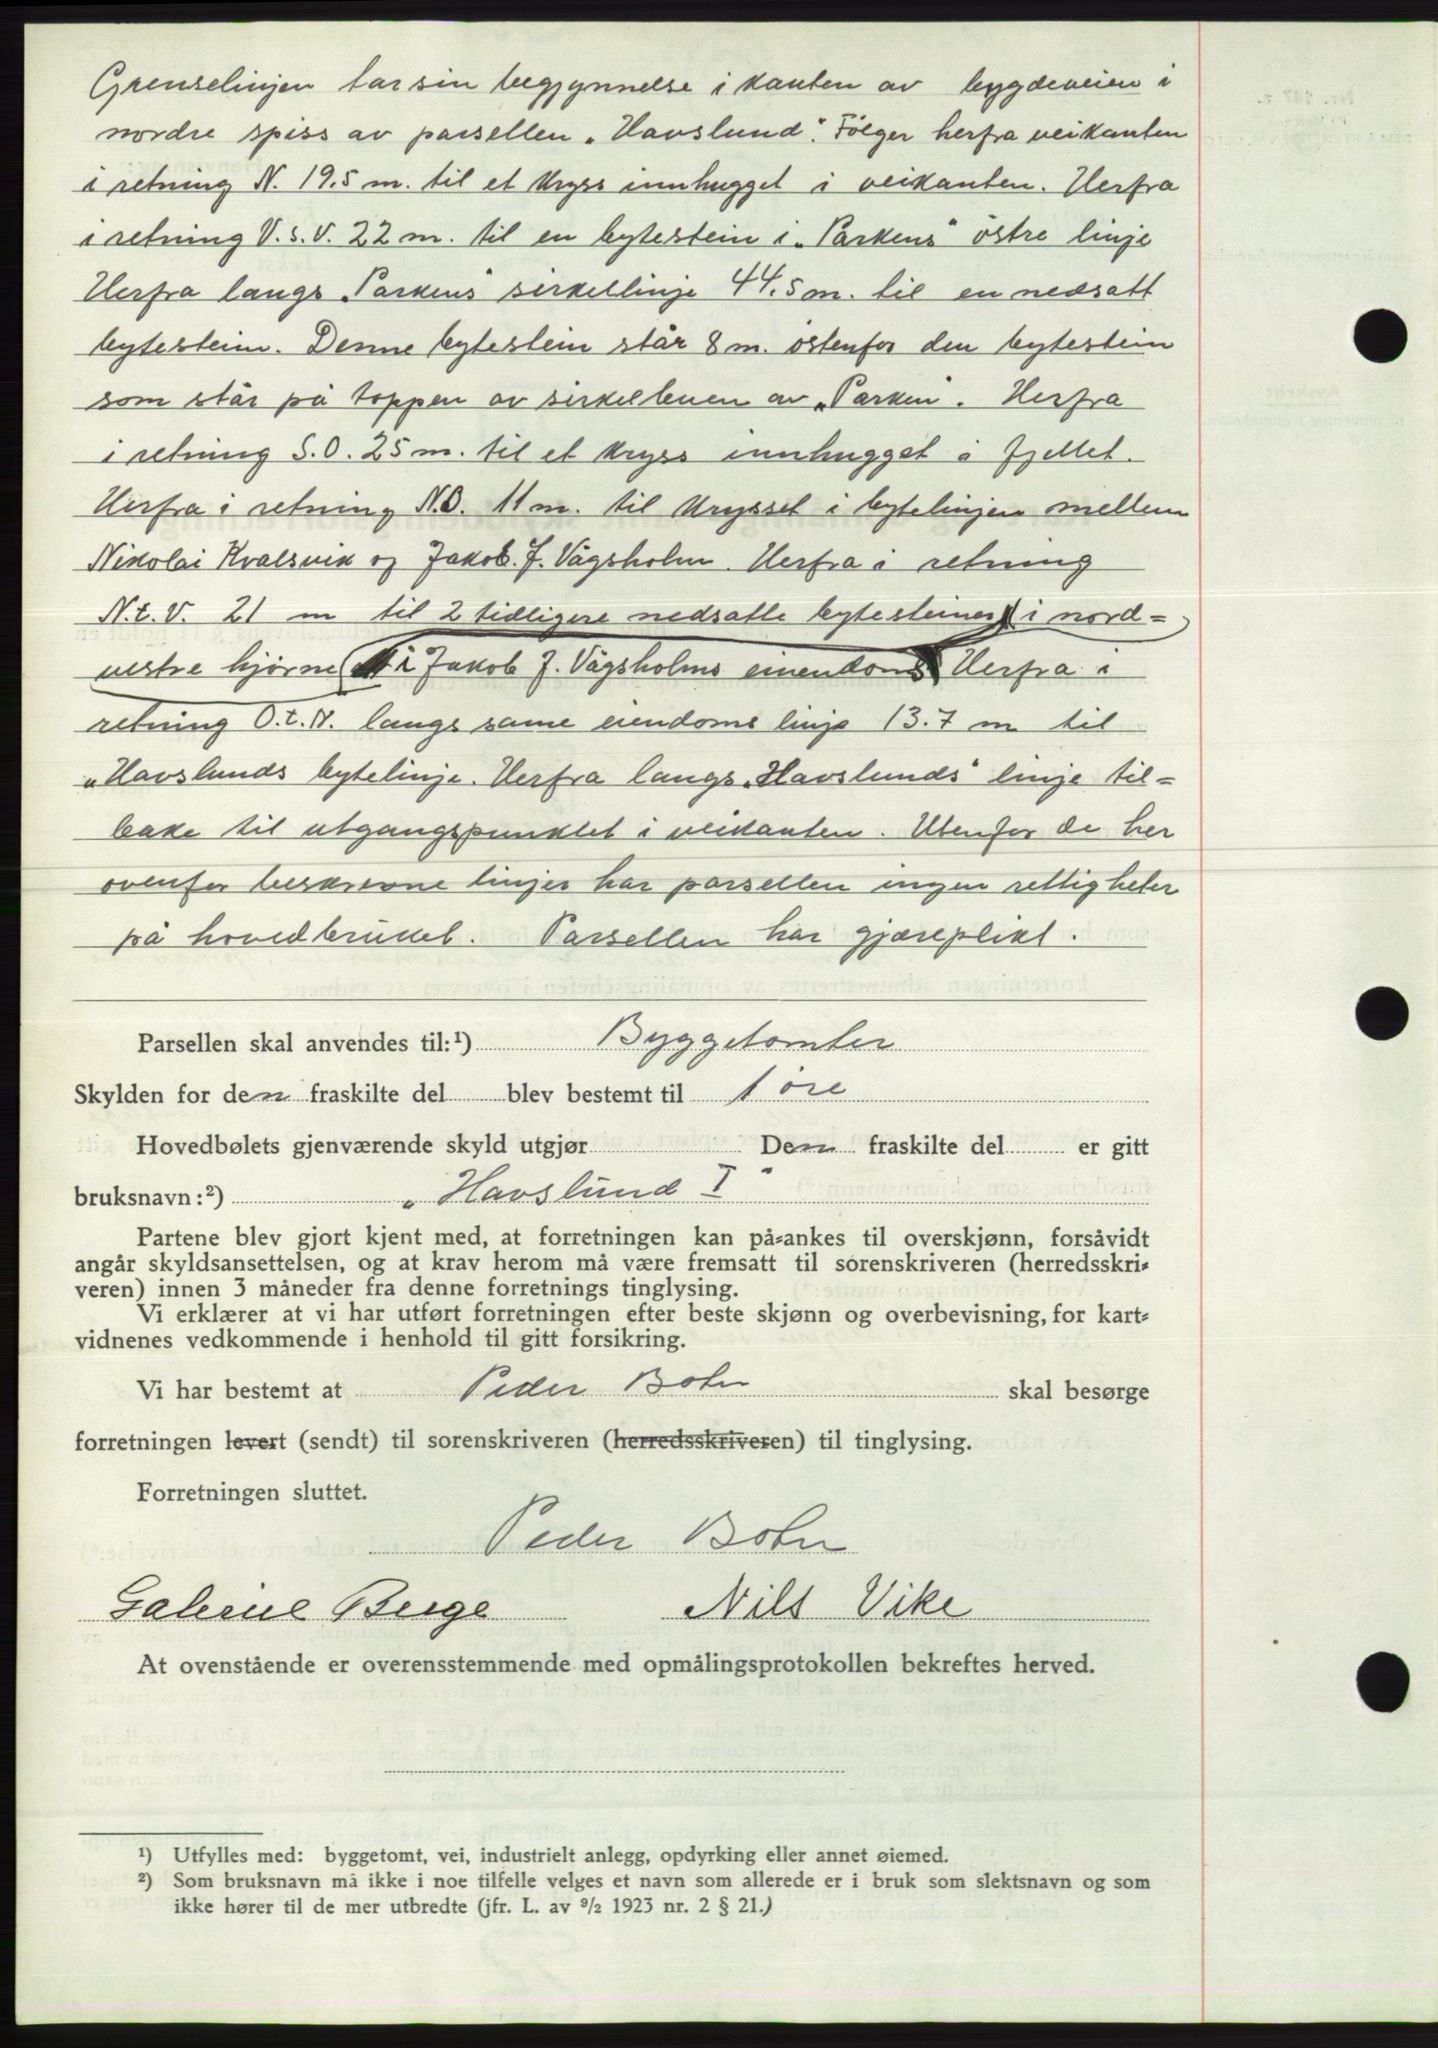 Grenselinjen tar sin begynnelse i kanten av bygdeveien i
nordre spiss av parsellen „Havslund“. Følger herfra veikanten
i retning N. 19.5 m. til et kryss innhugget i veikanten. Herfra
i retning V.s.V. 22 m. til en bytestein i „Parkens“ östre linje
Herfra langs „Parkens“ sirkellinje 44.5 m. til en nedsatt
bytestein. Denne bytestein står 8 m. östenfor den bytestein
som står på toppen av sirkelbuen av „Parken“. Herfra
i retning S.O. 25 m. til et kryss innhugget i fjellet.
Herfra i retning N.O. 11 m. til krysset i bytelinjen mellem
Nikolai Kvalsvik og Jakob. J. Vågsholm. Herfra i retning
N.t.V. 21 m til 2 tidligere nedsatte bytesteiner i nord=
vestre hjørne i Jakob J. Vågsholms eiendom Herfra i
retning O.t.N. langs same eiendoms linje 13.7 m til
„Havslunds bytelinje. Herfra langs „Havslunds“ linje til=
bake til utgangspunktet i veikanten. Utenfor de her
ovenfor beskrevne linjer har parsellen ingen rettigheter
på hovedbruket. Parsellen har gjæreplikt.
Parsellen skal anvendes til:¹) Byggetomter
Skylden for den fraskilte del blev bestemt til 1 øre
Hovedbølets gjenværende skyld utgjør Den fraskilte del er gitt
bruksnavn:²) „Havslund I“
Partene blev gjort kjent med, at forretningen kan på=ankes til overskjønn, forsåvidt
angår skyldsansettelsen, og at krav herom må være fremsatt til sorenskriveren (herredsskri=
veren) innen 3 måneder fra denne forretnings tinglysing.
Vi erklærer at vi har utført forretningen efter beste skjønn og overbevisning, for kart=
vidnenes vedkommende i henhold til gitt forsikring.
Vi har bestemt at Peder Bohn skal besørge
forretningen levert (sendt) til sorenskriveren (herredsskriveren) til tinglysing.
Forretningen sluttet.
Peder Bohn
Galerius Berge Nils Vike
At ovenstående er overensstemmende med opmålingsprotokollen bekreftes herved.
¹) Utfylles med: byggetomt, vei, industrielt anlegg, opdyrking eller annet øiemed.
²) Som bruksnavn må ikke i noe tilfelle velges et navn som allerede er i bruk som slektsnavn og som
ikke hører til de mer utbredte (jfr. L. av 9/2 1923 nr. 2 § 21.)